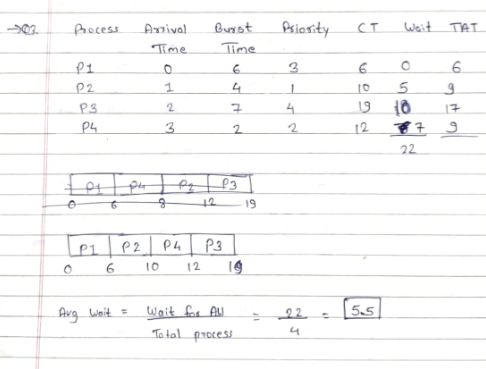 →Q3. Process Arrival Time Burst Time Priority CT Wait TAT
P1 0 6 3 6 0 6
P2 1 4 1 10 5 9
P3 2 7 4 19 10 17
P4 3 2 2 12 7 9
22
P1 P4 P2 P3
0 6 8 12 19
P1 P2 P4 P3
0 6 10 12 19
Avg Wait = Wait for All / Total process = 22 / 4 = 5.5